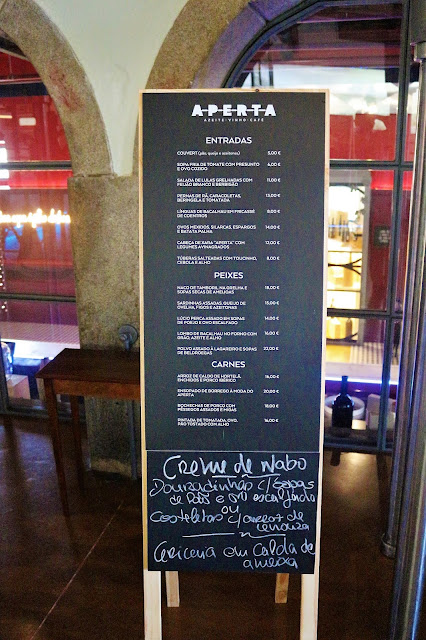 APERTA
AZEITE·VINHO·CAFÉ
ENTRADAS
COUVERT (pão, queijo e azeitonas) 5,00 €
SOPA FRIA DE TOMATE COM PRESUNTO 4,00 €
E OVO COZIDO
SALADA DE LULAS GRELHADAS COM 11,00 €
FEIJÃO BRANCO E BERBIGÃO
PERNAS DE RÃ, CARACOLETAS, 13,00 €
BERINGELA E TOMATADA
LÍNGUAS DE BACALHAU EM FRICASSÉ 9,00 €
DE COENTROS
OVOS MEXIDOS, SILARCAS, ESPARGOS 14,00 €
E BATATA PALHA
CABEÇA DE XARA "APERTA" COM 12,00 €
LEGUMES AVINAGRADOS
TÚBERAS SALTEADAS COM TOUCINHO, 8,00 €
CEBOLA E ALHO
PEIXES
NACO DE TAMBORIL NA GRELHA E 18,00 €
SOPAS SECAS DE AMEIJOAS
SARDINHAS ASSADAS, QUEIJO DE 15,00 €
OVELHA, FIGOS E AZEITONAS
LÚCIO PERCA ASSADO EM SOPAS 14,00 €
DE POEJO E OVO ESCALFADO
LOMBO DE BACALHAU NO FORNO COM 16,00 €
GRÃO, AZEITE E ALHO
POLVO ASSADO À LAGAREIRO E SOPAS 22,00 €
DE BELDROEGAS
CARNES
ARROZ DE CALDO DE HORTELÃ, 16,00 €
ENCHIDOS E PORCO IBÉRICO
ENSOPADO DE BORREGO À MODA DO 20,00 €
APERTA
BOCHECHAS DE PORCO COM 18,00 €
PÊSSEGOS ASSADOS E MIGAS
PINTADA DE TOMATADA, OVO, 16,00 €
PÃO TOSTADO COM ALHO
Creme de Nabo
Douradinhas c/ Sopas
de Pão e ovo escalfado
ou
Costeletas c/ arroz de
cenoura
Sericaia em Calda de
ameixa